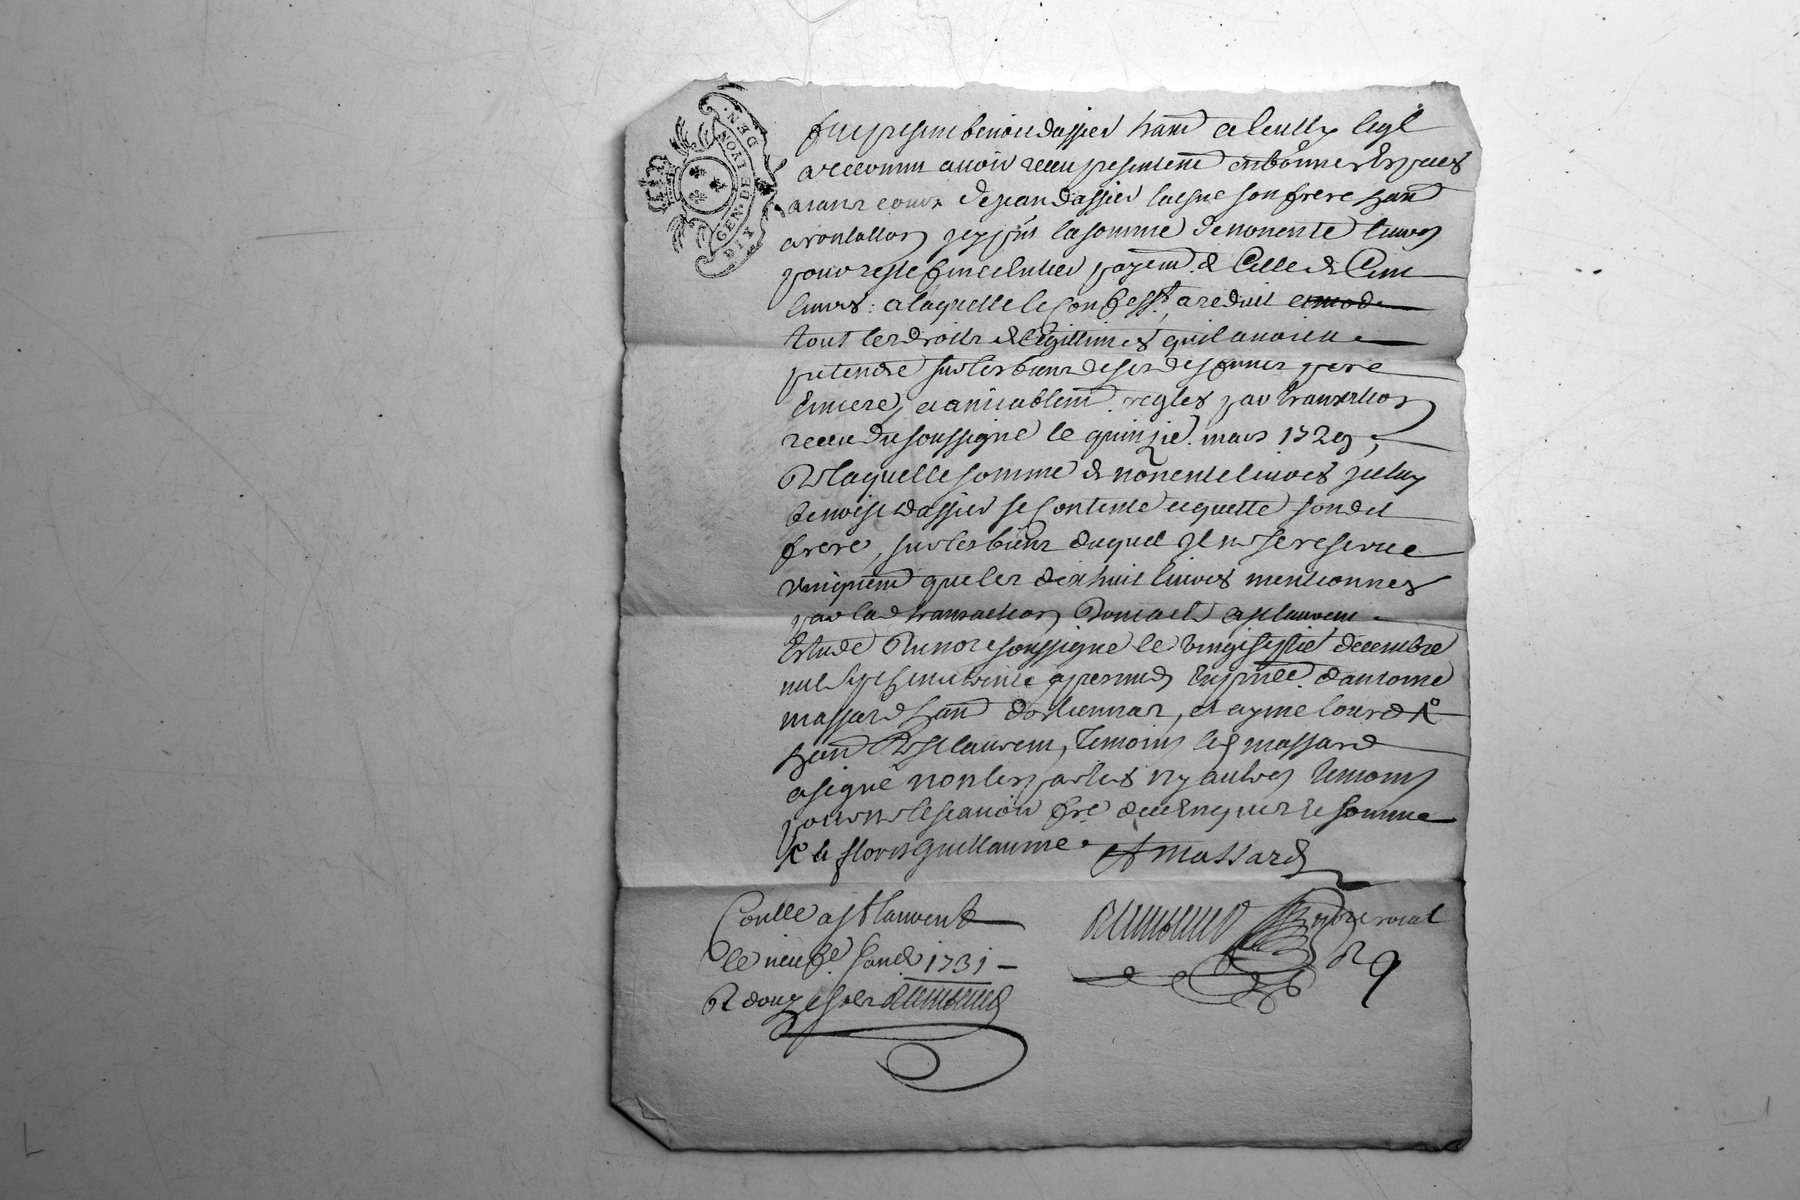 GEN. DE LYON.
DIX DEN.
fut present benoit dassier hant a
a reconnu avoir receu presentem^t en bonnes especes
ayant cours de jean dassier laisne son frere hant
a rontallon la somme de nonente livres
pour reste fin et entier payem^t. de Celle de Cent
livres: a laquelle le Confess^t. a reduit
tout les droits de legitimes quil avoit a
pretendre sur les biens de ses deffunts pere
et mere, et amiablem^t. regles par transaction
receu du soussigné le quinzie. mars 1729,
De laquelle somme de nonente livres
benoist dassier se Contente et quitte sond^t
frere, sur les biens duquel il ne se reserve
uniquem^t que les dix huit livres mentionnes
par lad transaction Dont acte a S^t laurent
Estude Du no^re soussigné le vingt septie^e decembre
mil sept cent trente apres midy en pn̄ce d'antoine
massard hant et ayme
hant De S^t laurent, temoins led massard
a signé non les parties ny autres temoins
pour ne le scavoir fre de ce enquis et somme
floris guillaume. A massard
Conllé a S^t laurent
le neuf^e janv^r 1731 -
R douze sols
no^re royal